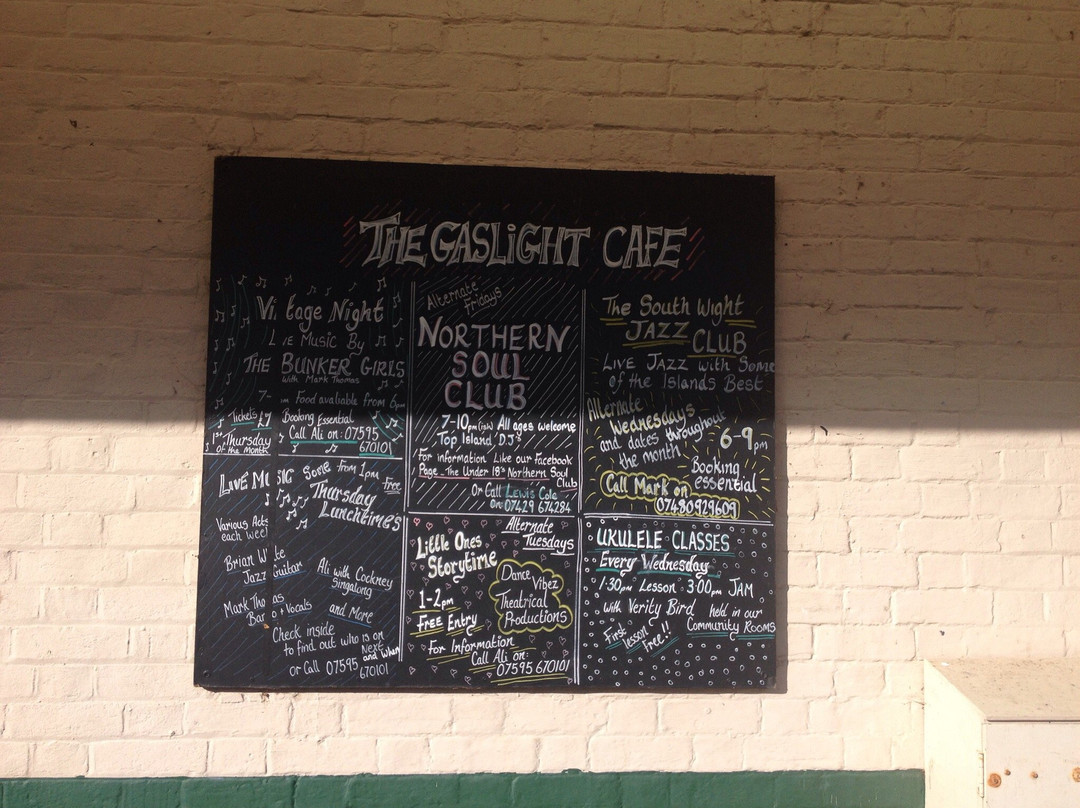 THE GASLIGHT CAFE
Vi tage Night
L VE Music By
THE BUNKER GIRLS
with Mark Thomas
7- Food avaliable from 6pm
Tickets £7
Booking Essential
Call Ali on: 07595
670101
1st Thursday
of the month
LIVE MUSIC
from 1pm
Free
Thursday
Lunchtimes
Various Acts
each week
Brian W te
Jazz Guitar
Ali with Cockney
Singalong
Mark Tho as
Bar o Vocals
and More
Check inside
to find out who is on
Next
and when
or Call 07595
670101
Alternate
Fridays
NORTHERN
SOUL
CLUB
7-10pm All ages welcome
Top Island D.J's
For information Like our Facebook
Page - The Under 18's Northern Soul
Club
Or Call Lewis Cole
On: 07429 674284
Alternate
Tuesdays
Little Ones
Storytime
1-2pm
FREE Entry
Dance
Vibez
Theatrical
Productions
For Information
Call Ali on:
07595 670101
The South Wight
JAZZ CLUB
LIVE JAZZ with Some
of the Islands Best
Alternate
Wednesdays
and dates throughout
the month
6-9pm
Booking
essential
Call Mark on
07480929609
UKULELE CLASSES
Every Wednesday
1:30pm Lesson - 3:00pm JAM
with Verity Bird held in our
Community ROOMS
First
lesson
free!!